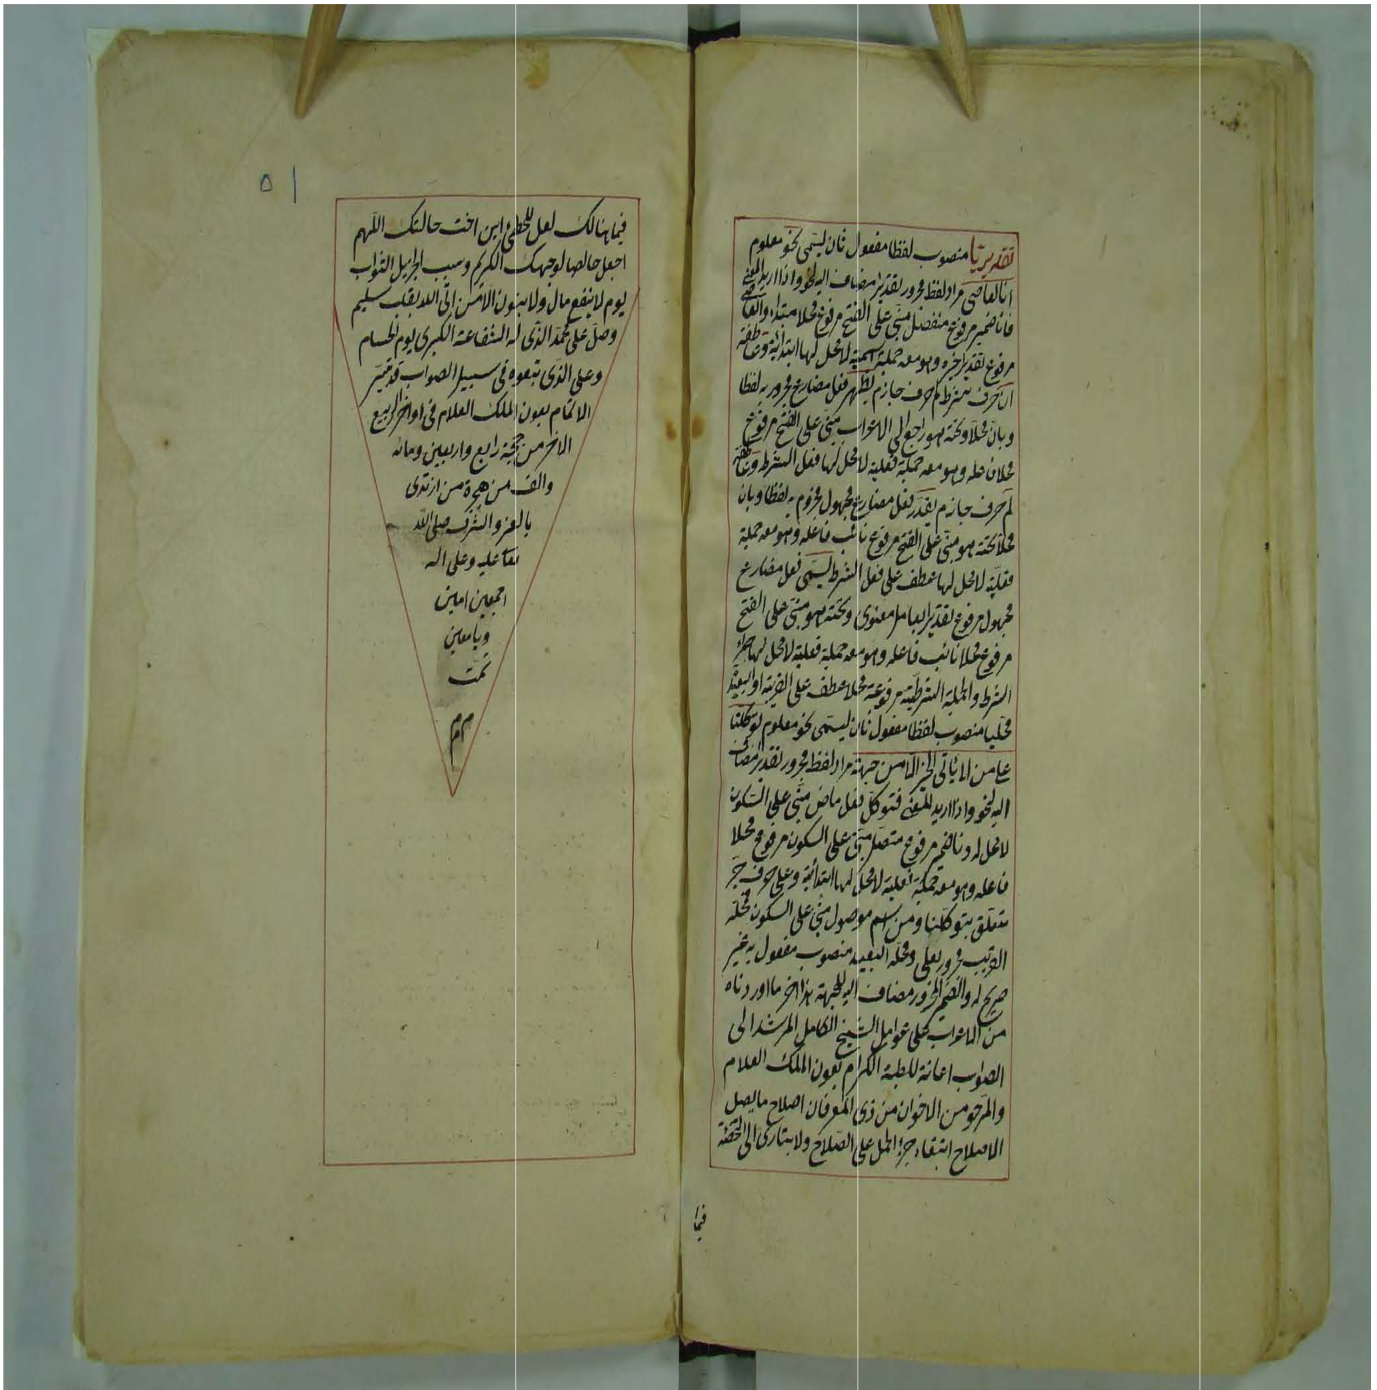 تقديريا منصوب لفظا مفعول ثان ليسمى نحو معلوم
انا العاصى مراد لفظ مجرور تقديرا مضاف اليه لنحو واذا اريد المعنى
فانا ضمير مرفوع منفصل مبنى على الفتح مرفوع محلا مبتداء والعاصى
مرفوع تقديرا خبره وهو معه جملة اسمية لا محل لها ابتدائية وعاطفة
ان حرف شرط لم حرف جازم يظهر فعل مضارع مجزوم به لفظا
وبان محلا وتحته هو راجع الى الاعراب مبنى على الفتح مرفوع
محلا فاعله وهو معه جملة فعلية لا محل لها فعل الشرط وعاطفة
لم حرف جازم يقدر فعل مضارع مجهول مجزوم به لفظا وبان
محلا تحته هو مبنى على الفتح مرفوع نائب فاعله وهو معه جملة
فعلية لا محل لها عطف على فعل الشرط يسمى فعل مضارع
مجهول مرفوع تقديرا بعامل معنوى وتحته هو مبنى على الفتح
مرفوع محلا نائب فاعله وهو معه جملة فعلية لا محل لها جزاء
الشرط والجملة الشرطية مرفوعة محلا عطف على القريبة او البعيدة
محليا منصوب لفظا مفعول ثان ليسمى نحو معلوم توكلنا
على من لا ياتى الخير الا من جهته مراد لفظ مجرور تقديرا مضاف
اليه لنحو واذا اريد المعنى فتوكل فعل ماض مبنى على السكون
لا محل له ونا ضمير مرفوع متصل مبنى على السكون مرفوع محلا
فاعله وهو معه جملة فعلية لا محل لها ابتدائية وعلى حرف جر
متعلق بتوكلنا ومن اسم موصول مبنى على السكون محله
القريب مجرور بعلى ومحله البعيد منصوب مفعول به غير
صريح له والضمير المجرور مضاف اليه للجهة هذا اخر ما اوردناه
من الاعراب على عوامل الشيخ الكامل المرشد الى
الصواب اعانة للطلبة الكرام بعون الملك العلام
والمرجو من الاخوان من ذى العرفان اصلاح ما يصل
الاصلاح ابتغاء جزاء الحمل على الصلاح ولا يتارى الى التخطئة
فيما
٥١
فيما هنالك لعل للخطئ ابن اخت خالتك اللهم
اجعل خالصا لوجهك الكريم وسبب الجزيل الثواب
يوم لا ينفع مال ولا بنون الا من اتى الله بقلب سليم
وصل على محمد الذى له الشفاعة الكبرى يوم الحسام
وعلى الذى تبعوه فى سبيل الصواب قد تيسر
الاتمام بعون الملك العلام فى اواخر الربيع
الاخر من حجة رابع واربعين ومائه
والف من هجرة من ارتدى
بالعز والشرف صلى الله
تعا عليه وعلى اله
اجمعين امين
ويا معين
تمت
م م م